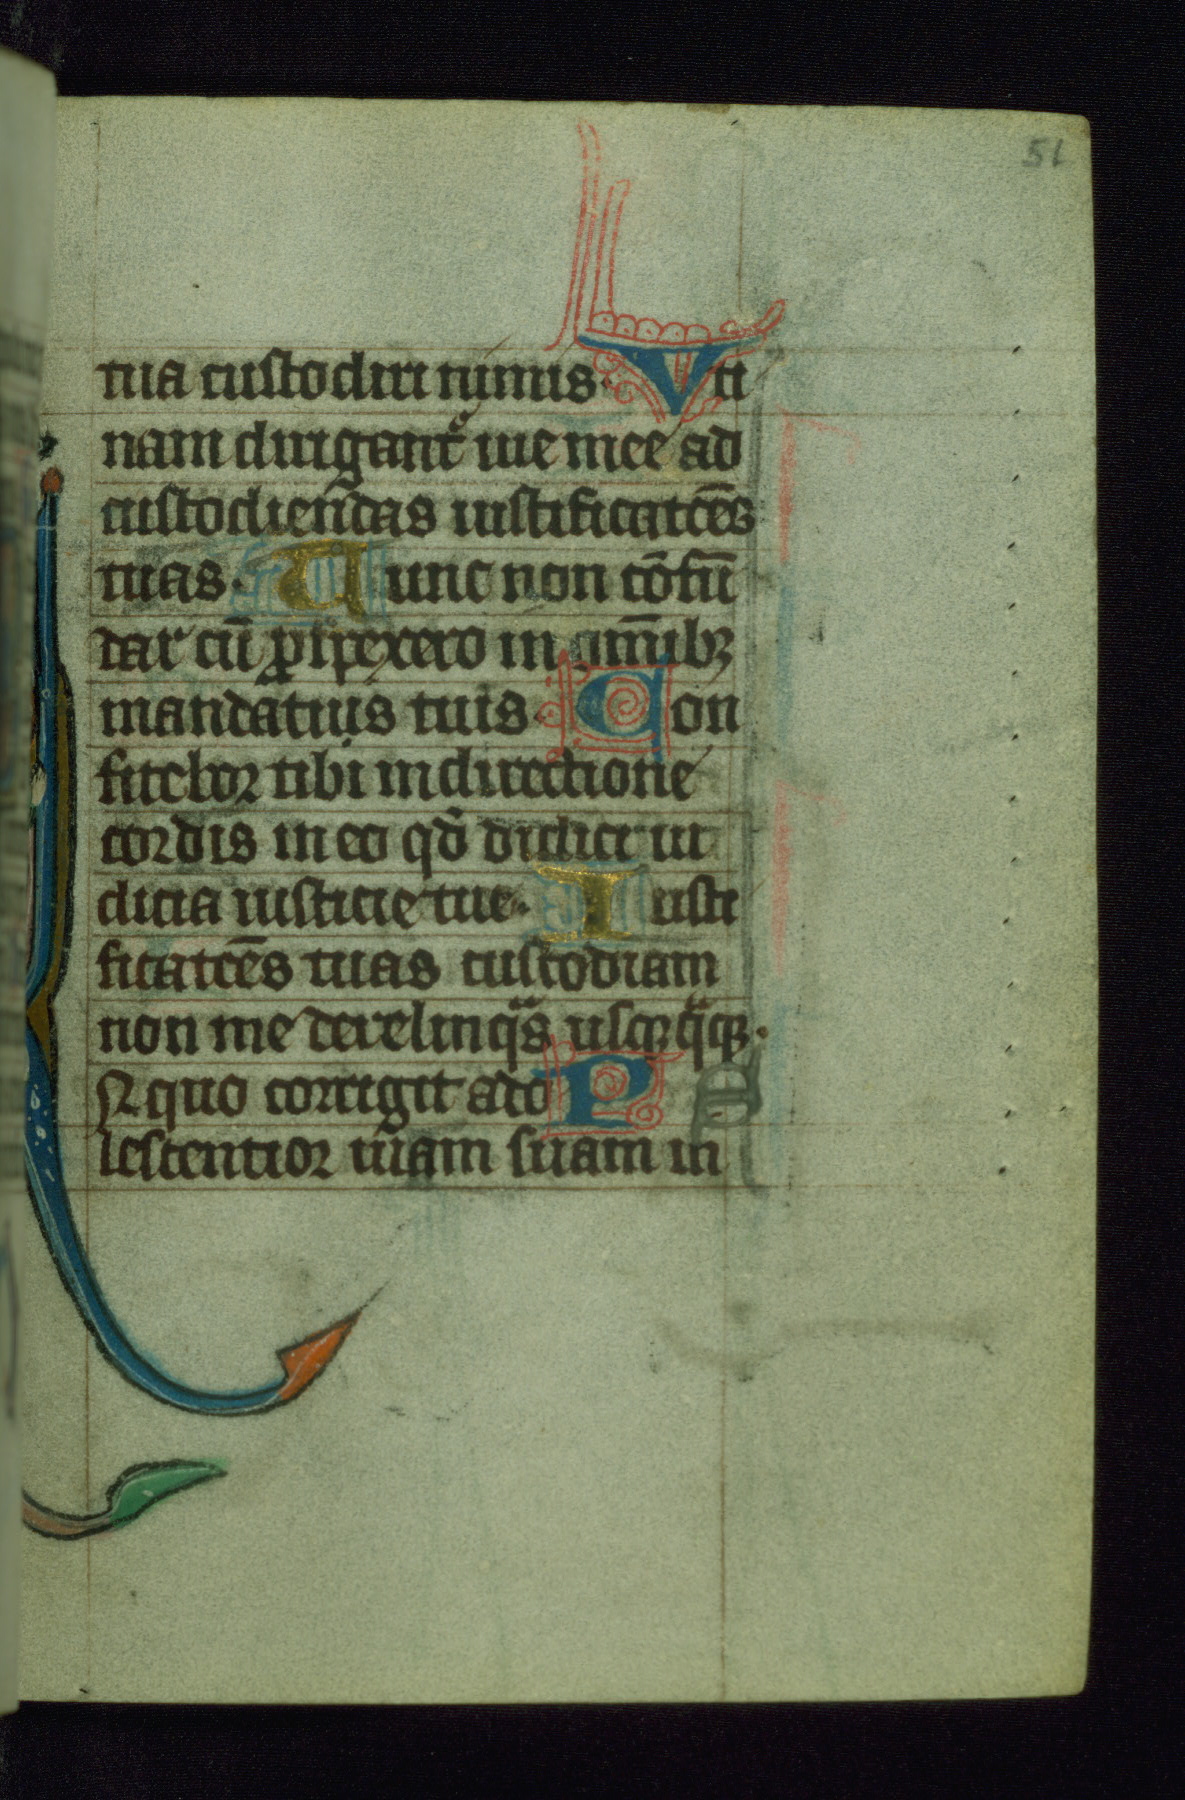 51
tua custodiri nimis. Vti
nam dirigant᷑ uie mee ad
custodiendas iustificatiõēs
tuas. Tunc non cōfū
dar cū ꝓspexero in om̄ibꝫ
mandatiuis tuis. Con
fitebor tibi in directione
cordis in eo qd̄ didici iu
dicia iusticie tue. Iusti
ficatiōēs tuas custodiam
non me derelinqͣs usqꝫqͣqꝫ.
In quo corrigit ado P
lescentior uiam suam in